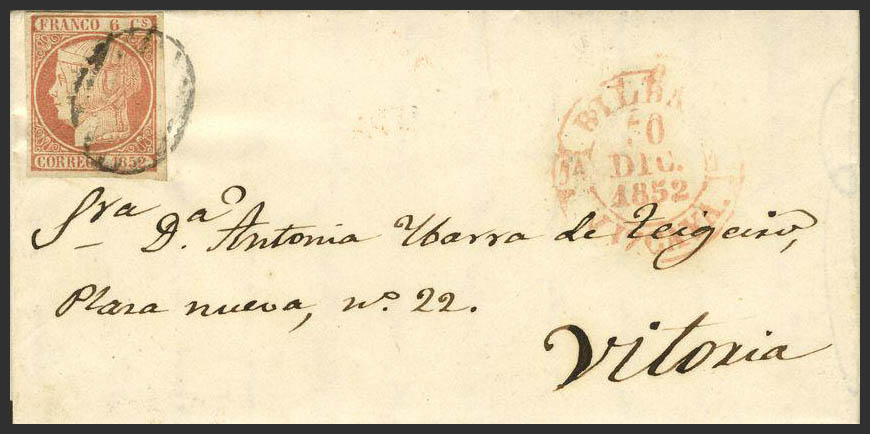 FRANCO 6 Cs
CORREOS 1852
BILBA
30
DIC.
1852
VIZCAYA.
Sra Da. Antonia Ybarra de Teigeiro,
Plaza nueva, no. 22.
Vitoria